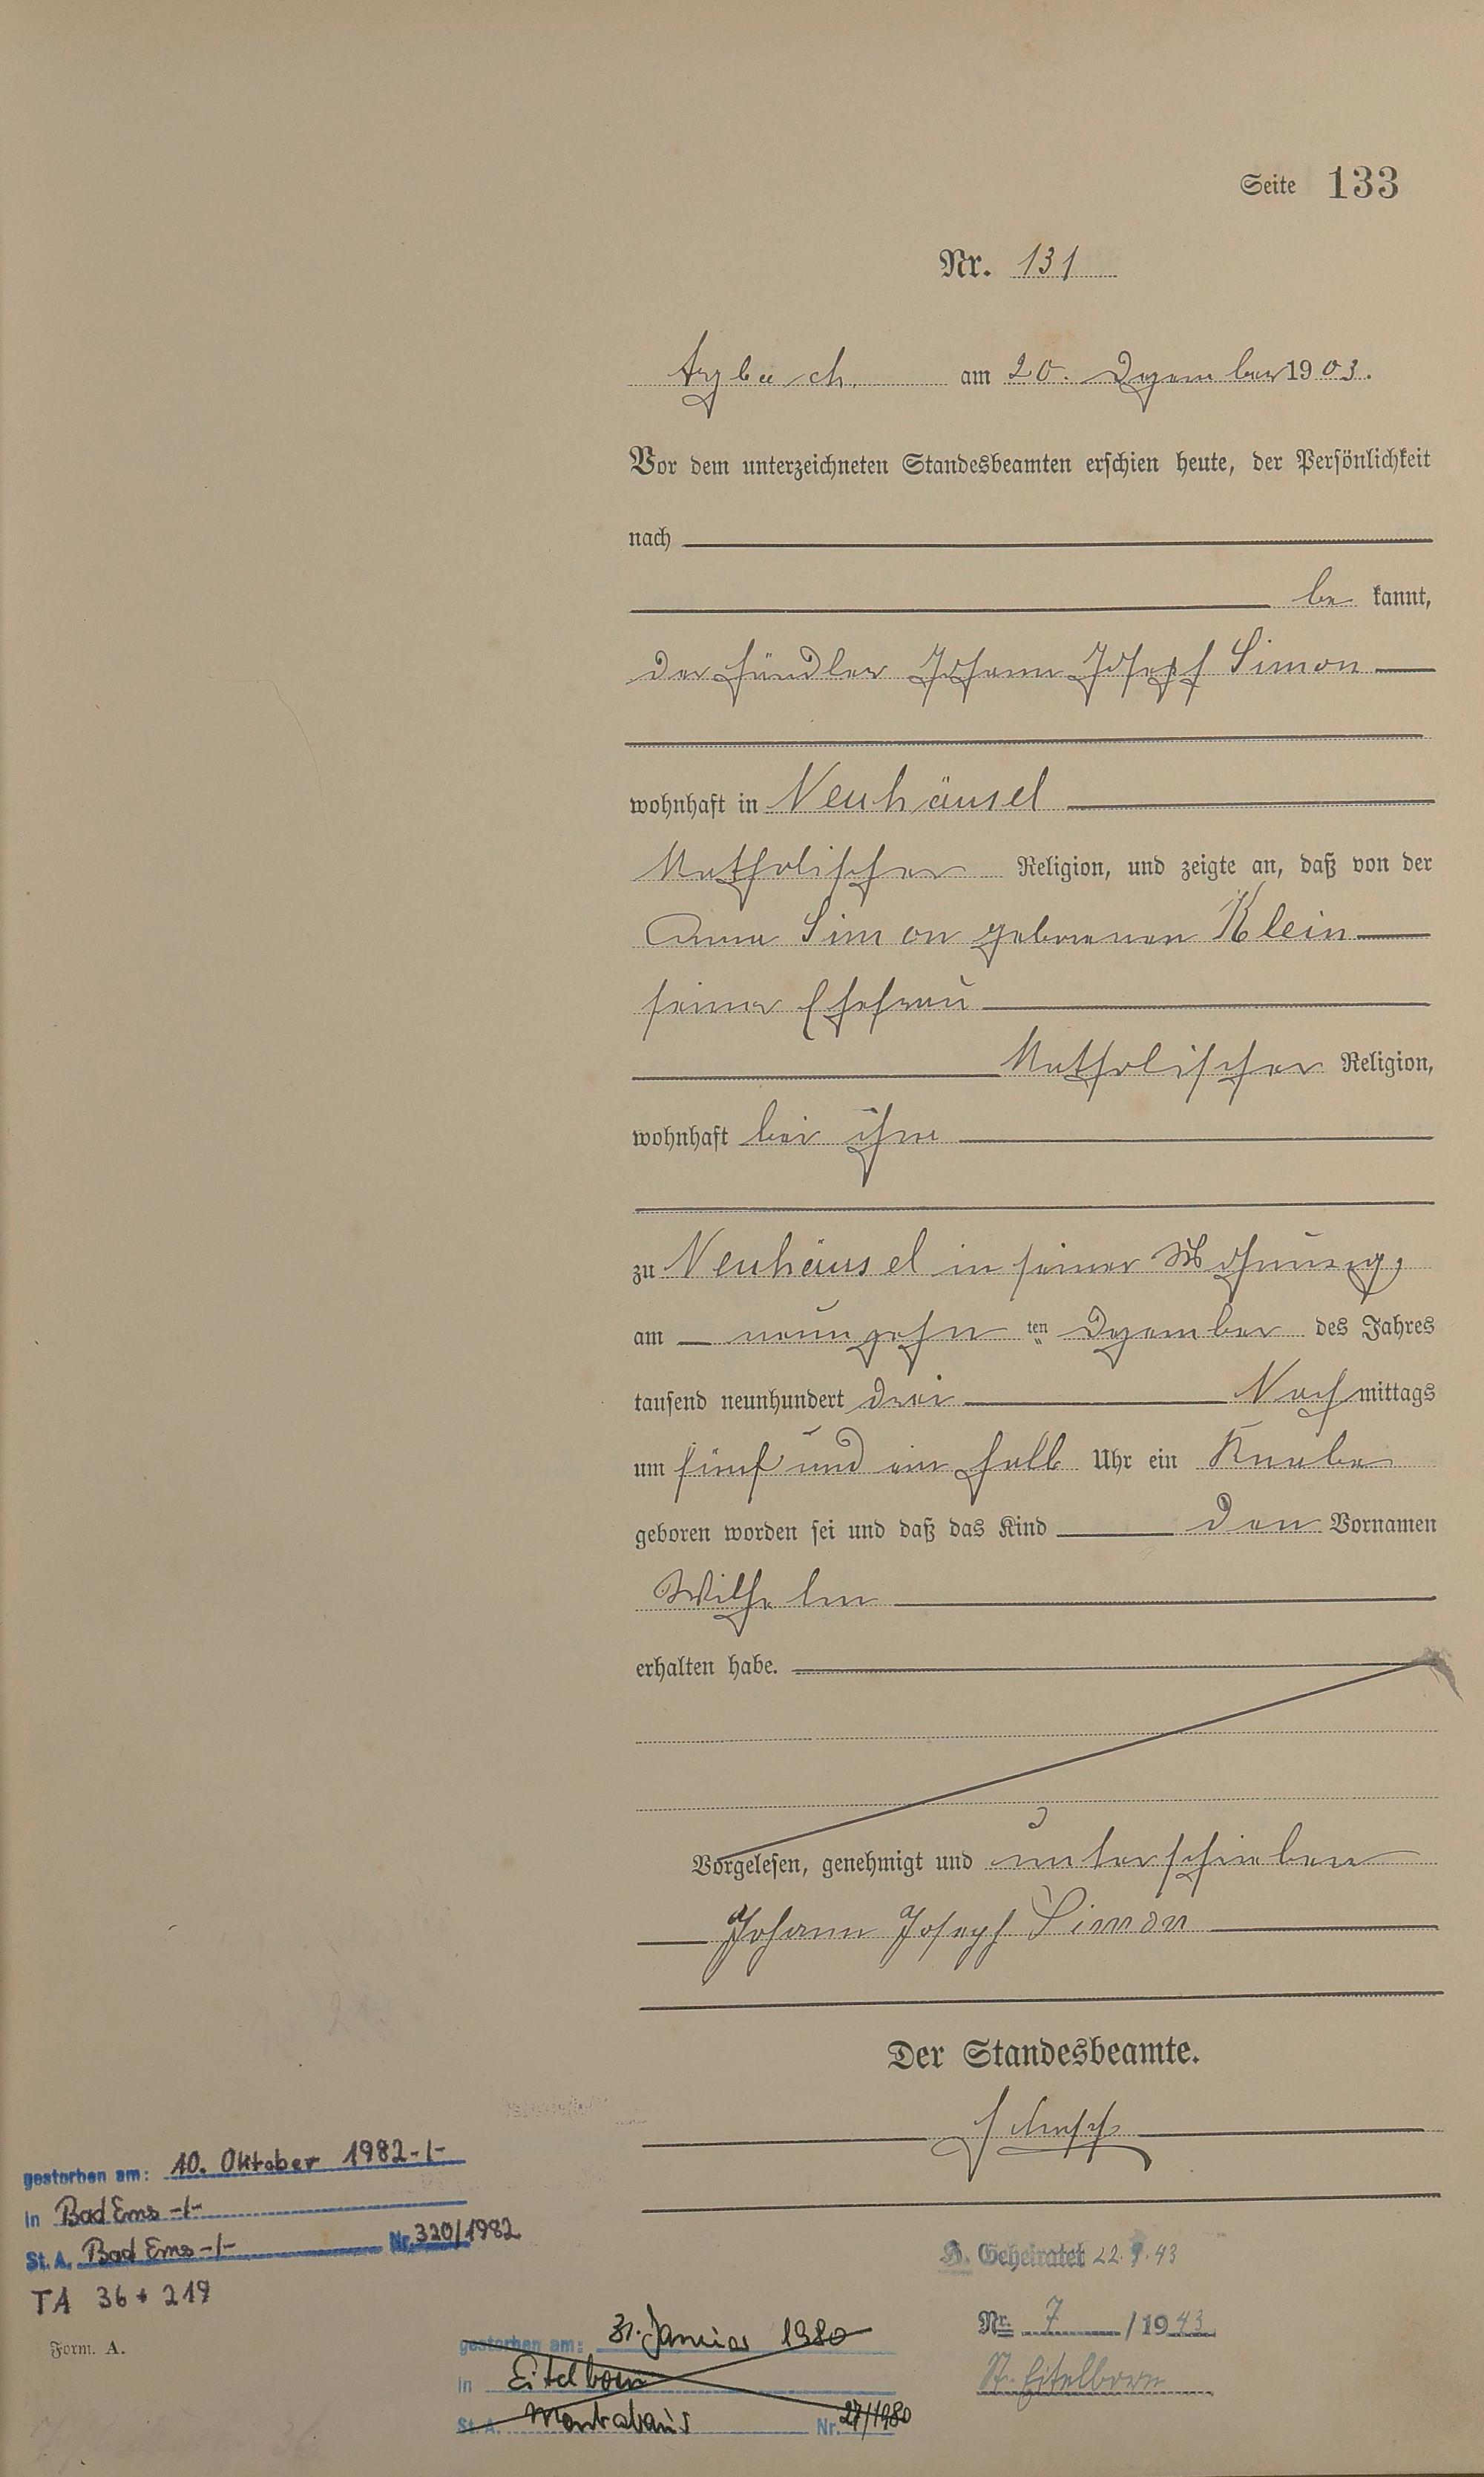 Seite 133
Nr. 131
Arzbach am 20. Dezember 1903.
Vor dem unterzeichneten Standesbeamten erschien heute, der Persönlichkeit
nach
be kannt,
der Händler Johann Josepf Simon
wohnhaft in Neuhäusel
Katholischer Religion, und zeigte an, daß von der
Anna Simon geborenen Klein
seiner Ehefrau
Katholischer Religion,
wohnhaft bei ihm
zu Neuhäusel in seiner Wohnung,
am neunzehn ten Dezember des Jahres
tausend neunhundert drei Nachmittags
um fünf und ein halb Uhr ein Knabe
geboren worden sei und daß das Kind den Vornamen
Wilhelm
erhalten habe.
Vorgelesen, genehmigt und unterschrieben
Johann Joseph Simon
Der Standesbeamte.
gestorben am: 10. Oktober 1982-/-
in Bad Ems -/-
St. A. Bad Ems -/- Nr. 320/1982
TA 36 + 219
Form. A.
gestorben am: 31. Januar 1980
in Eitelborn
St. A. Montabaur Nr. 27/1980
H. Geheiratet 22. 43
Nr. 7 /1943
St. Eitelborn